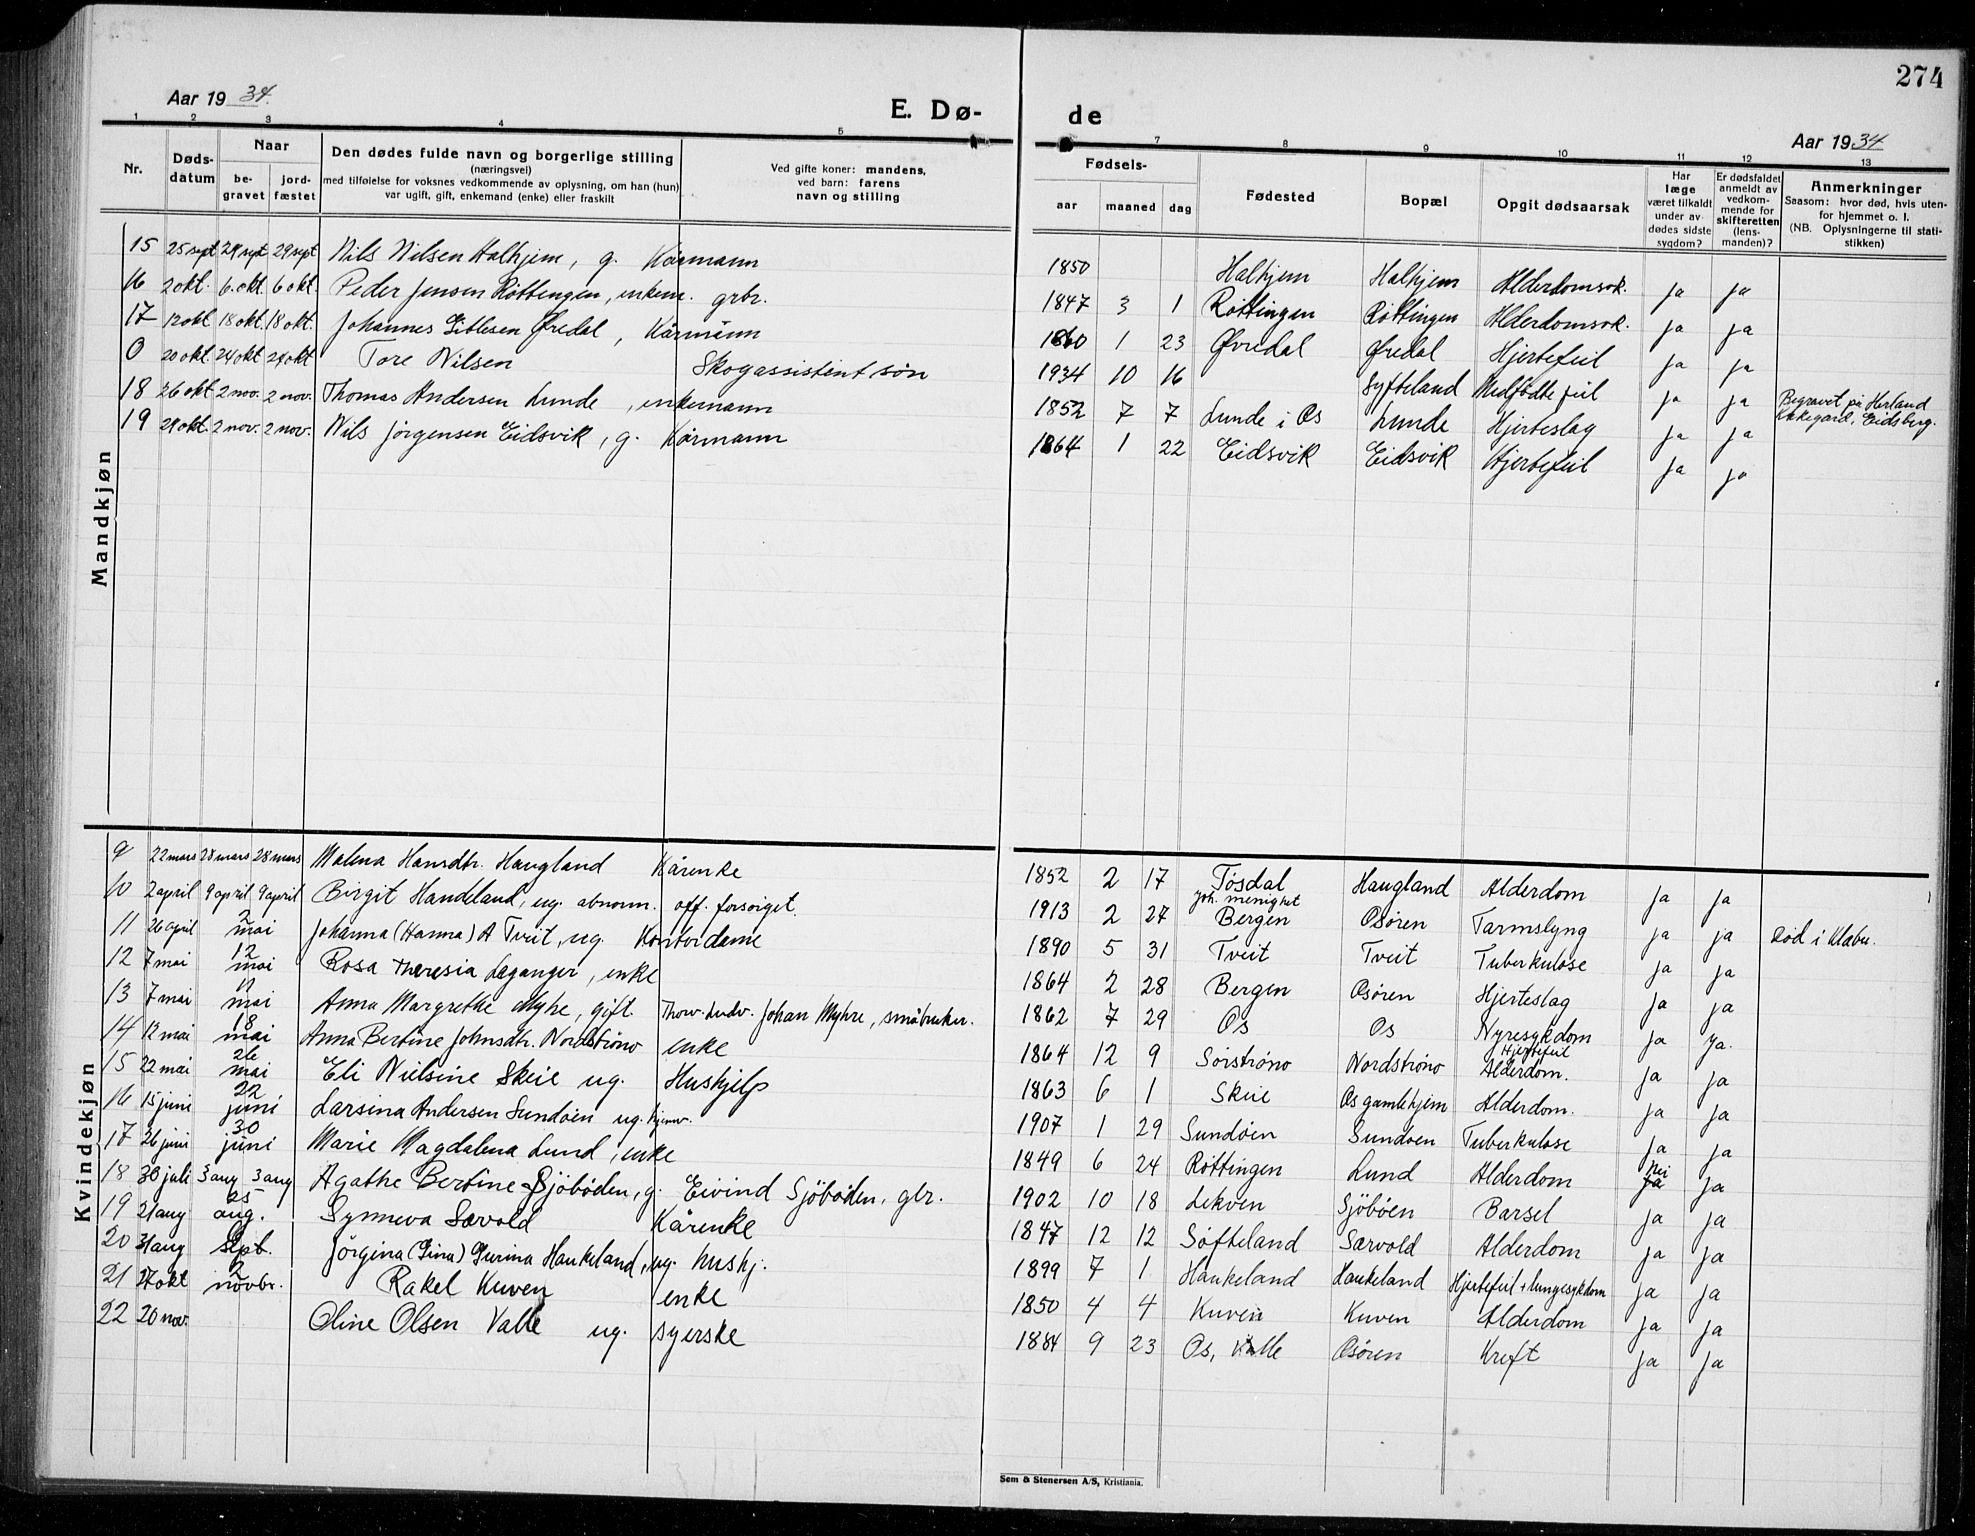 274
Aar 1934.
E. Dø-
de
Aar 1934
1 2 3 4 5 7 8 9 10 11 12 13
Nr.
Døds-
datum
Naar
be-
gravet
jord-
fæstet
Den dødes fulde navn og borgerlige stilling
(næringsvei)
med tilføielse for voksnes vedkommende av oplysning, om han (hun)
var ugift, gift, enkemand (enke) eller fraskilt
Ved gifte koner: mandens,
ved barn: farens
navn og stilling
Fødsels-
aar maaned dag
Fødested
Bopæl
Opgit dødsaarsak
Har
læge
været tilkaldt
under av-
dødes sidste
sygdom?
Er dødsfaldet
anmeldt av
vedkom-
mende for
skifteretten
(lens-
manden)?
Anmerkninger
Saasom: hvor død, hvis uten-
for hjemmet o. l.
(NB. Oplysningerne til stati-
stikken)
Mandkjøn
15 25 sept 29 sept 29 sept Nils Nilsen Halhjem, g. Kårmann 1850 Halhjem Halhjem Alderdomsvk. ja ja
16 2 okt. 6. okt. 6 okt. Peder Jensen Røttingen, enkem. grbr. 1847 3 1 Røttingen Røttingen Alderdomsvk. ja ja
17 12 okt 18 okt. 18 okt. Johannes Øvredal, Kårmann 1860 1 23 Øvredal Øvredal Hjertefeil ja ja
0 20 okt 24 okt 24 okt Tore Nilsen Skogassistent søn 1934 10 16 Syfteland Medfødte feil ja ja
18 26 okt 2 nov. 2 nov. Thomas Andersen Lunde, enkemann 1852 7 7 Lunde i Os Lunde Hjerteslag ja ja Begravet på Herland
Kirkegård, Eidsberg.
19 29 okt. 2 nov. 2 nov. Nils Jørgensen Eidsvik, g. Kårmann 1864 1 22 Eidsvik Eidsvik Hjertefeil ja ja
Kvindekjøn
9 22 mars 28 mars 28 mars Malena Hansdtr. Haugland Kårenke 1852 2 17 Tøsdal Haugland Alderdom ja ja
10 2 april 9 april 9 april Birgit Handeland, ug. abnorm. off. forsørget. 1913 2 27 Joh. menighet
Bergen Osøren Tarmslyng ja ja Død i Klæbu.
11 26 april 2 mai Johanna (Hanna) A Tveit, ug. Kontordame 1890 5 31 Tveit Tveit Tuberkulose ja ja
12 7 mai 12 mai Rosa Theresia Leganger, enke 1864 2 28 Bergen Osøren Hjerteslag ja ja
13 7 mai 11 mai Anna Margrethe Myhe, gift. Thorv. Ludv. Johan Myhre, småbruker. 1862 7 29 Os Os Nyresykdom ja ja.
14 12 mai 18 mai Anna Bertine Johnsdtr. Nordstrøno enke 1864 12 9 Sørstrøno Nordstrøno Hjertefeil
Alderdom. ja ja
15 22 mai 26 mai Eli Nielsine Skeie ug. Hushjelp 1863 6 1 Skeie Os gamlehjem Alderdom. ja ja
16 15 juni 22 juni Larsina Andersen Sundøen ug. hjemv. 1907 1 29 Sundøen Sundøen Tuberkulose ja ja
17 26 juni 30 juni Marie Magdalena Lund, enke 1849 6 24 Røttingen Lund Alderdom Nei ja ja
18 30 juli 3 aug 3 aug Agathe Bertine Sjöböden, g. Eivind Sjöböden, gbr. 1902 10 18 Lekven Sjöböen Barsel ja ja
19 21 aug 25 aug. Synneva Særvold Kårenke 1847 12 12 Søfteland Særvold Alderdom ja ja
20 31 aug septb. Jörgina (Gina) Gurina Haukeland, ug. hushj. 1899 7 1 Haukeland Haukeland Hjertefeil + lungesykdom ja ja
21 27 okt 2 novbr. Rakel Kuven enke 1850 4 4 Kuven Kuven Alderdom ja ja
22 20 nov. Oline Olsen Valle ug. syerske 1884 9 23 Os, Valle Osøren Kreft ja ja
Sem & Stenersen A/S, Kristiania.